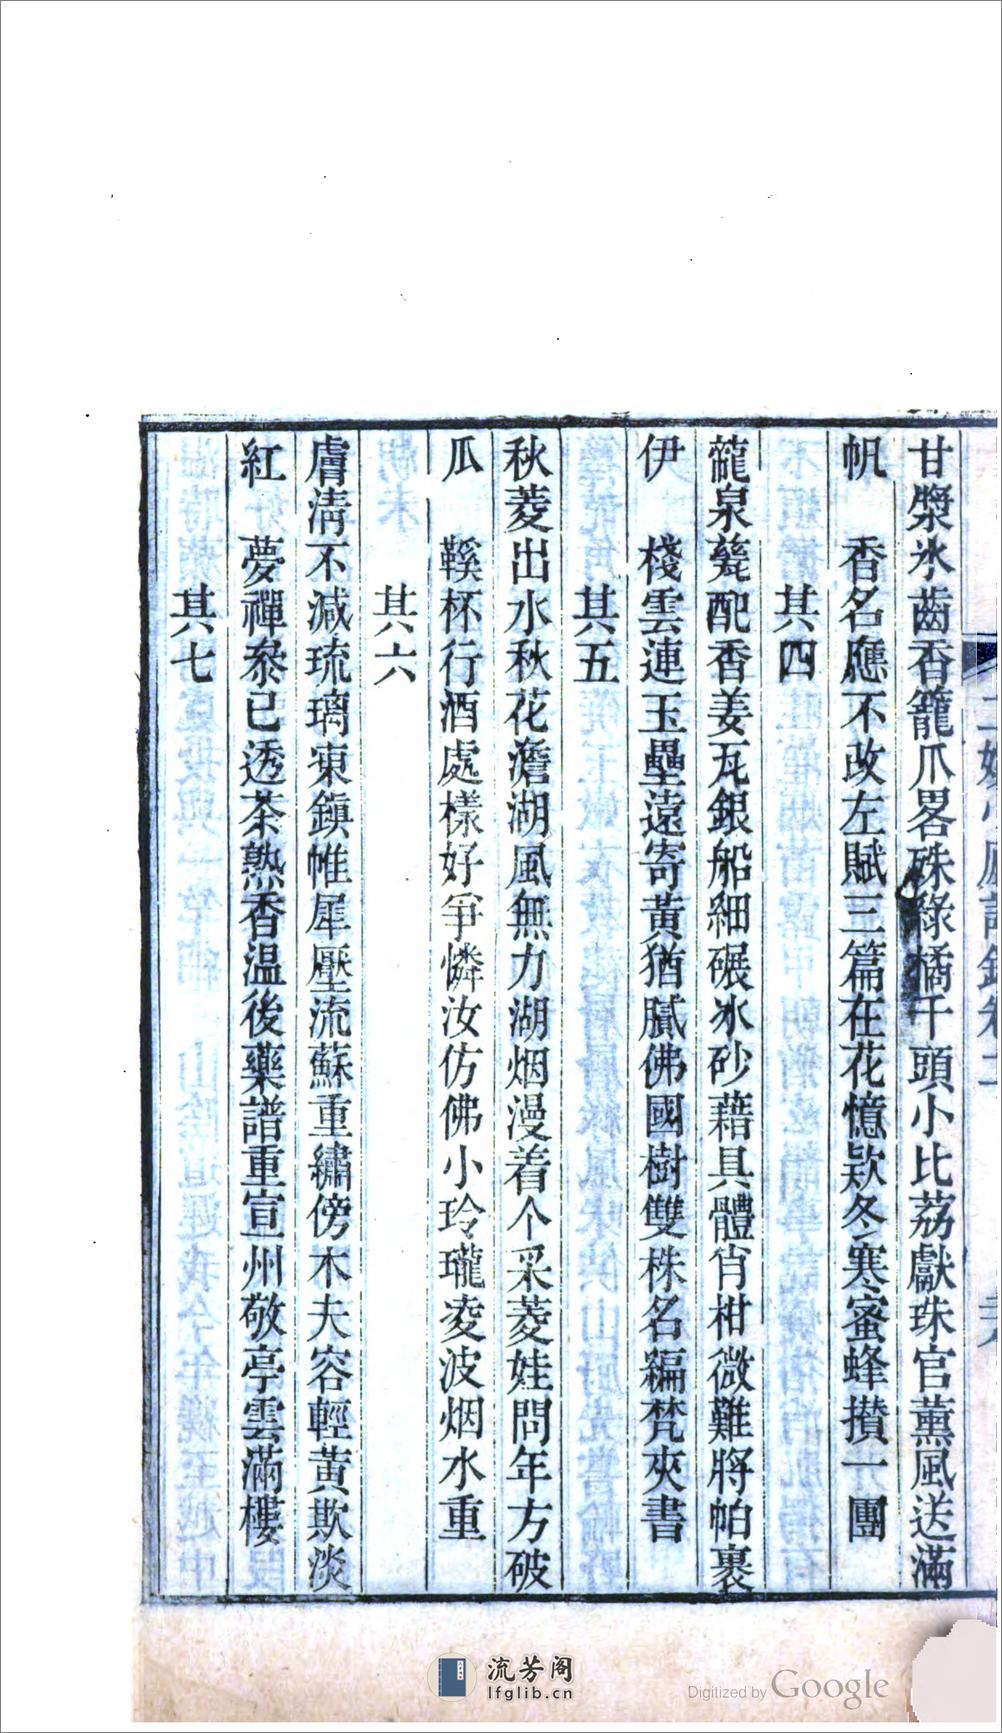 甘漿氷齒香籠爪畧硃綠橘千頭小比荔獻珠官薰風送滿
帆　香名應不改左賦三篇在花憶欵冬寒蜜蜂攅一團
其四
蘢泉甆配香姜瓦銀船細碾氷砂藉具體肖柑微難將帕裹
伊　棧雲連玉壘遠寄黃猶膩佛國樹雙株名編梵夾書
其五
秋菱出水秋花澹湖風無力湖烟漫着个采菱娃問年方破
瓜　鞵杯行酒處樣好爭憐汝仿佛小玲瓏凌波烟水重
其六
膚淸不減琉璃涷鎭帷犀壓流蘇重繡傍木夫容輕黃欺淡
紅　夢禪叅已透茶熟香温後藥譜重宣州敬亭雲滿樓
其七
流芳阁
lfglib.cn
Digitized by Google